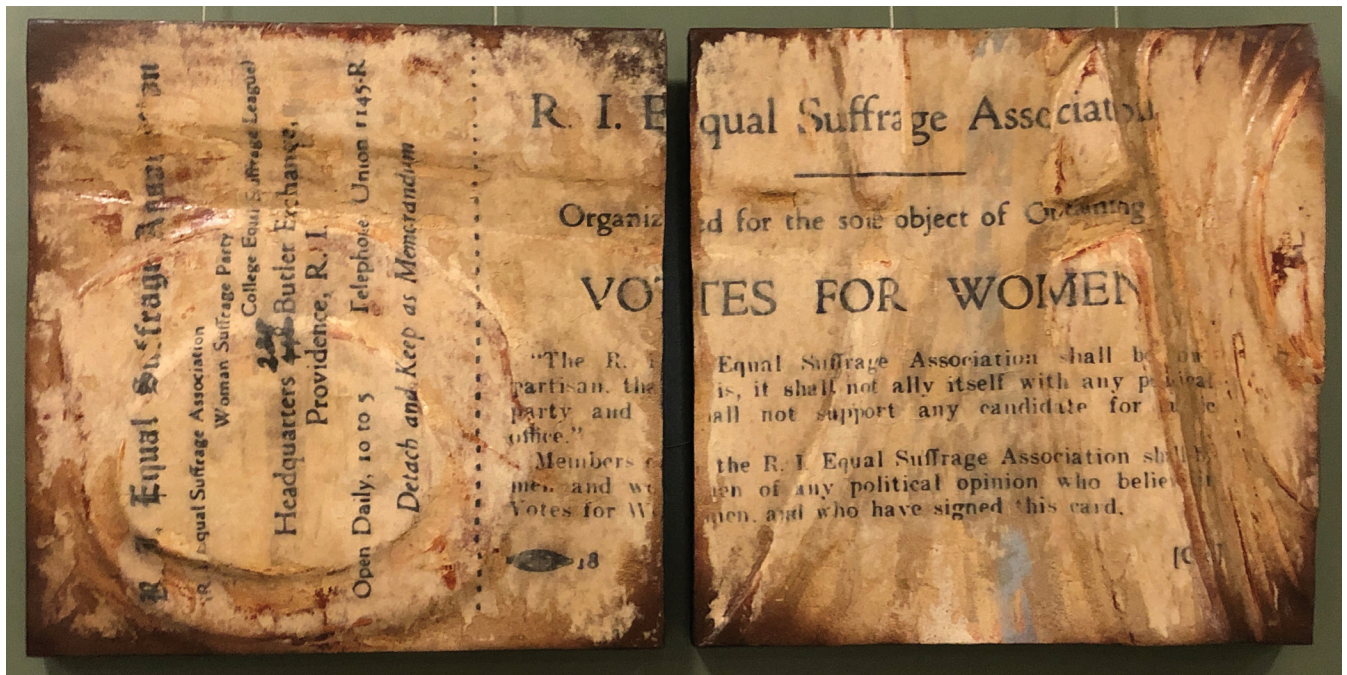 R. I. Equal Suffrage
(R. I. Equal Suffrage Association
Woman Suffrage Party
College Equal Suffrage League)
Headquarters Butler Exchange,
Providence, R. I.
Open Daily, 10 to 5 Telephone Union 1145-R
Detach and Keep as Memorandum
R. I. Equal Suffrage Association
Organized for the sole object of Obtaining
VOTES FOR WOMEN
"The R. I. Equal Suffrage Association shall be
partisan, that is, it shall not ally itself with any political
party and shall not support any candidate for
office."
Members of the R. I. Equal Suffrage Association shall be
men and women of any political opinion who believe in
Votes for Women, and who have signed this card.
18